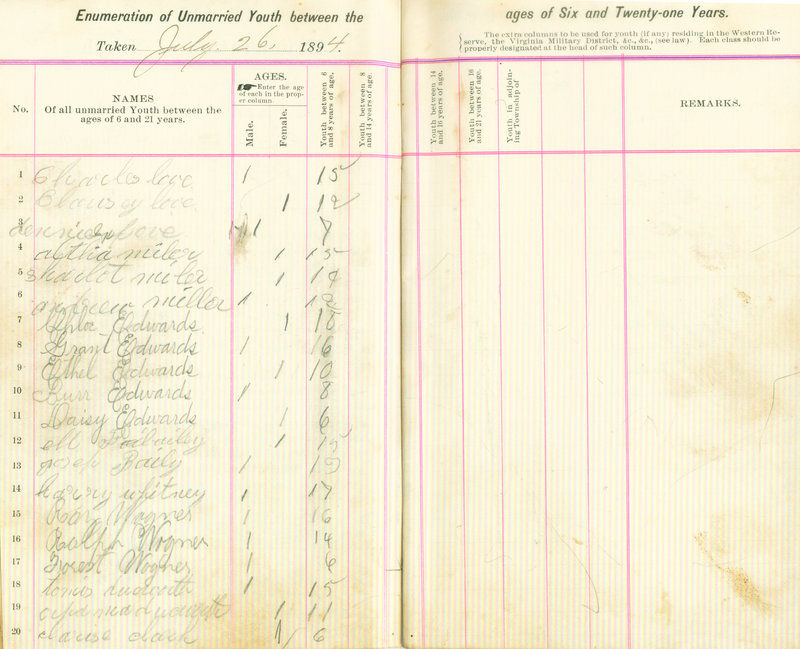 Enumeration of Unmarried Youth between the ages of Six and Twenty-one Years.
Taken July. 26, 1894.
The extra columns to be used for youth (if any) residing in the Western Re-
serve, the Virginia Military District, &c., &c., (see law). Each class should be
properly designated at the head of such column.
No.
NAMES
Of all unmarried Youth between the
ages of 6 and 21 years.
AGES.
Enter the age
of each in the prop-
er column.
Male.
Female.
Youth between 6
and 8 years of age.
Youth between 8
and 14 years of age.
Youth between 14
and 16 years of age.
Youth between 16
and 21 years of age.
Youth in adjoin-
ing Township of
REMARKS.
1 Charles love 1 15
2 love 1 12
3 love 1 7
4 miler 1 15
5 miler 1
6 miller 1
7 Chloe Edwards 1
8 Grant Edwards 1 16
9 Ethel Edwards 1 10
10 Burr Edwards 1 8
11 Daisy Edwards 1 6
12 1 15
13 Baily 1
14 harry whitney 1 17
15 Ray Wogner 1 16
16 Ralph Wogner 1 14
17 Forest Wogner 1 6
18 1 15
19 1 11
20 1 6